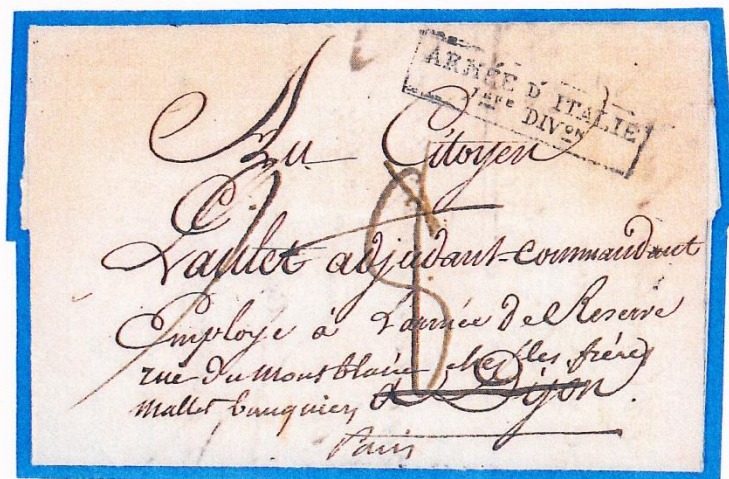 ARMÉE D'ITALIE
1ere DIVon
Au Citoyen
adjudant-commandant
Employé à L'armée de Reserve
rue du montblanc chez les frères
mallet banquiers à Dijon.
Paris